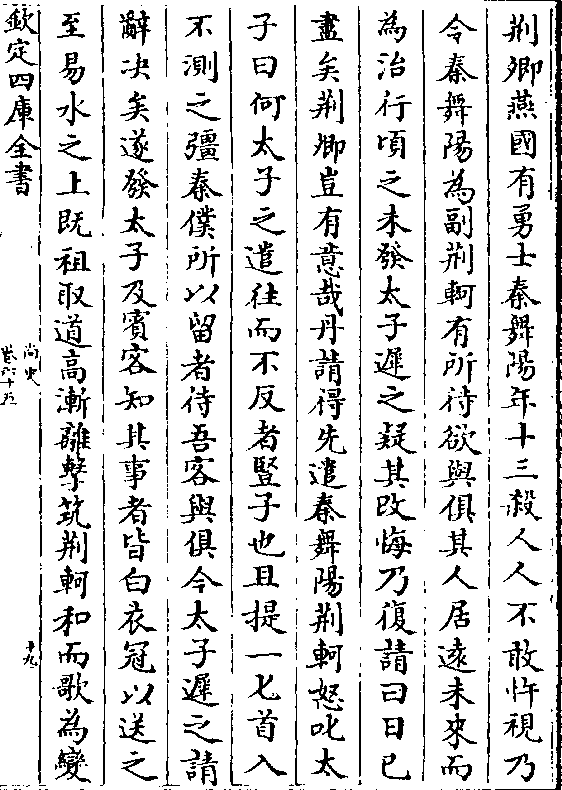 荆卿燕國有勇士秦舞陽年十三殺人人不敢忤視乃
令秦舞陽為副荆軻有所待欲與俱其人居逺未來而
為治行頃之未發太子遲之疑其改悔乃復請曰日已
盡矣荆卿豈有意哉丹請得先遣秦舞陽荆軻怒叱太
子曰何太子之遣往而不反者豎子也且提一匕首入
不測之彊秦僕所以留者待吾客與俱今太子遲之請
辭决矣遂發太子及賓客知其事者皆白衣冠以送之
至易水之上既祖取道高漸離擊筑荆軻和而歌為變
欽定四庫全書
尚史
卷六十五
十九